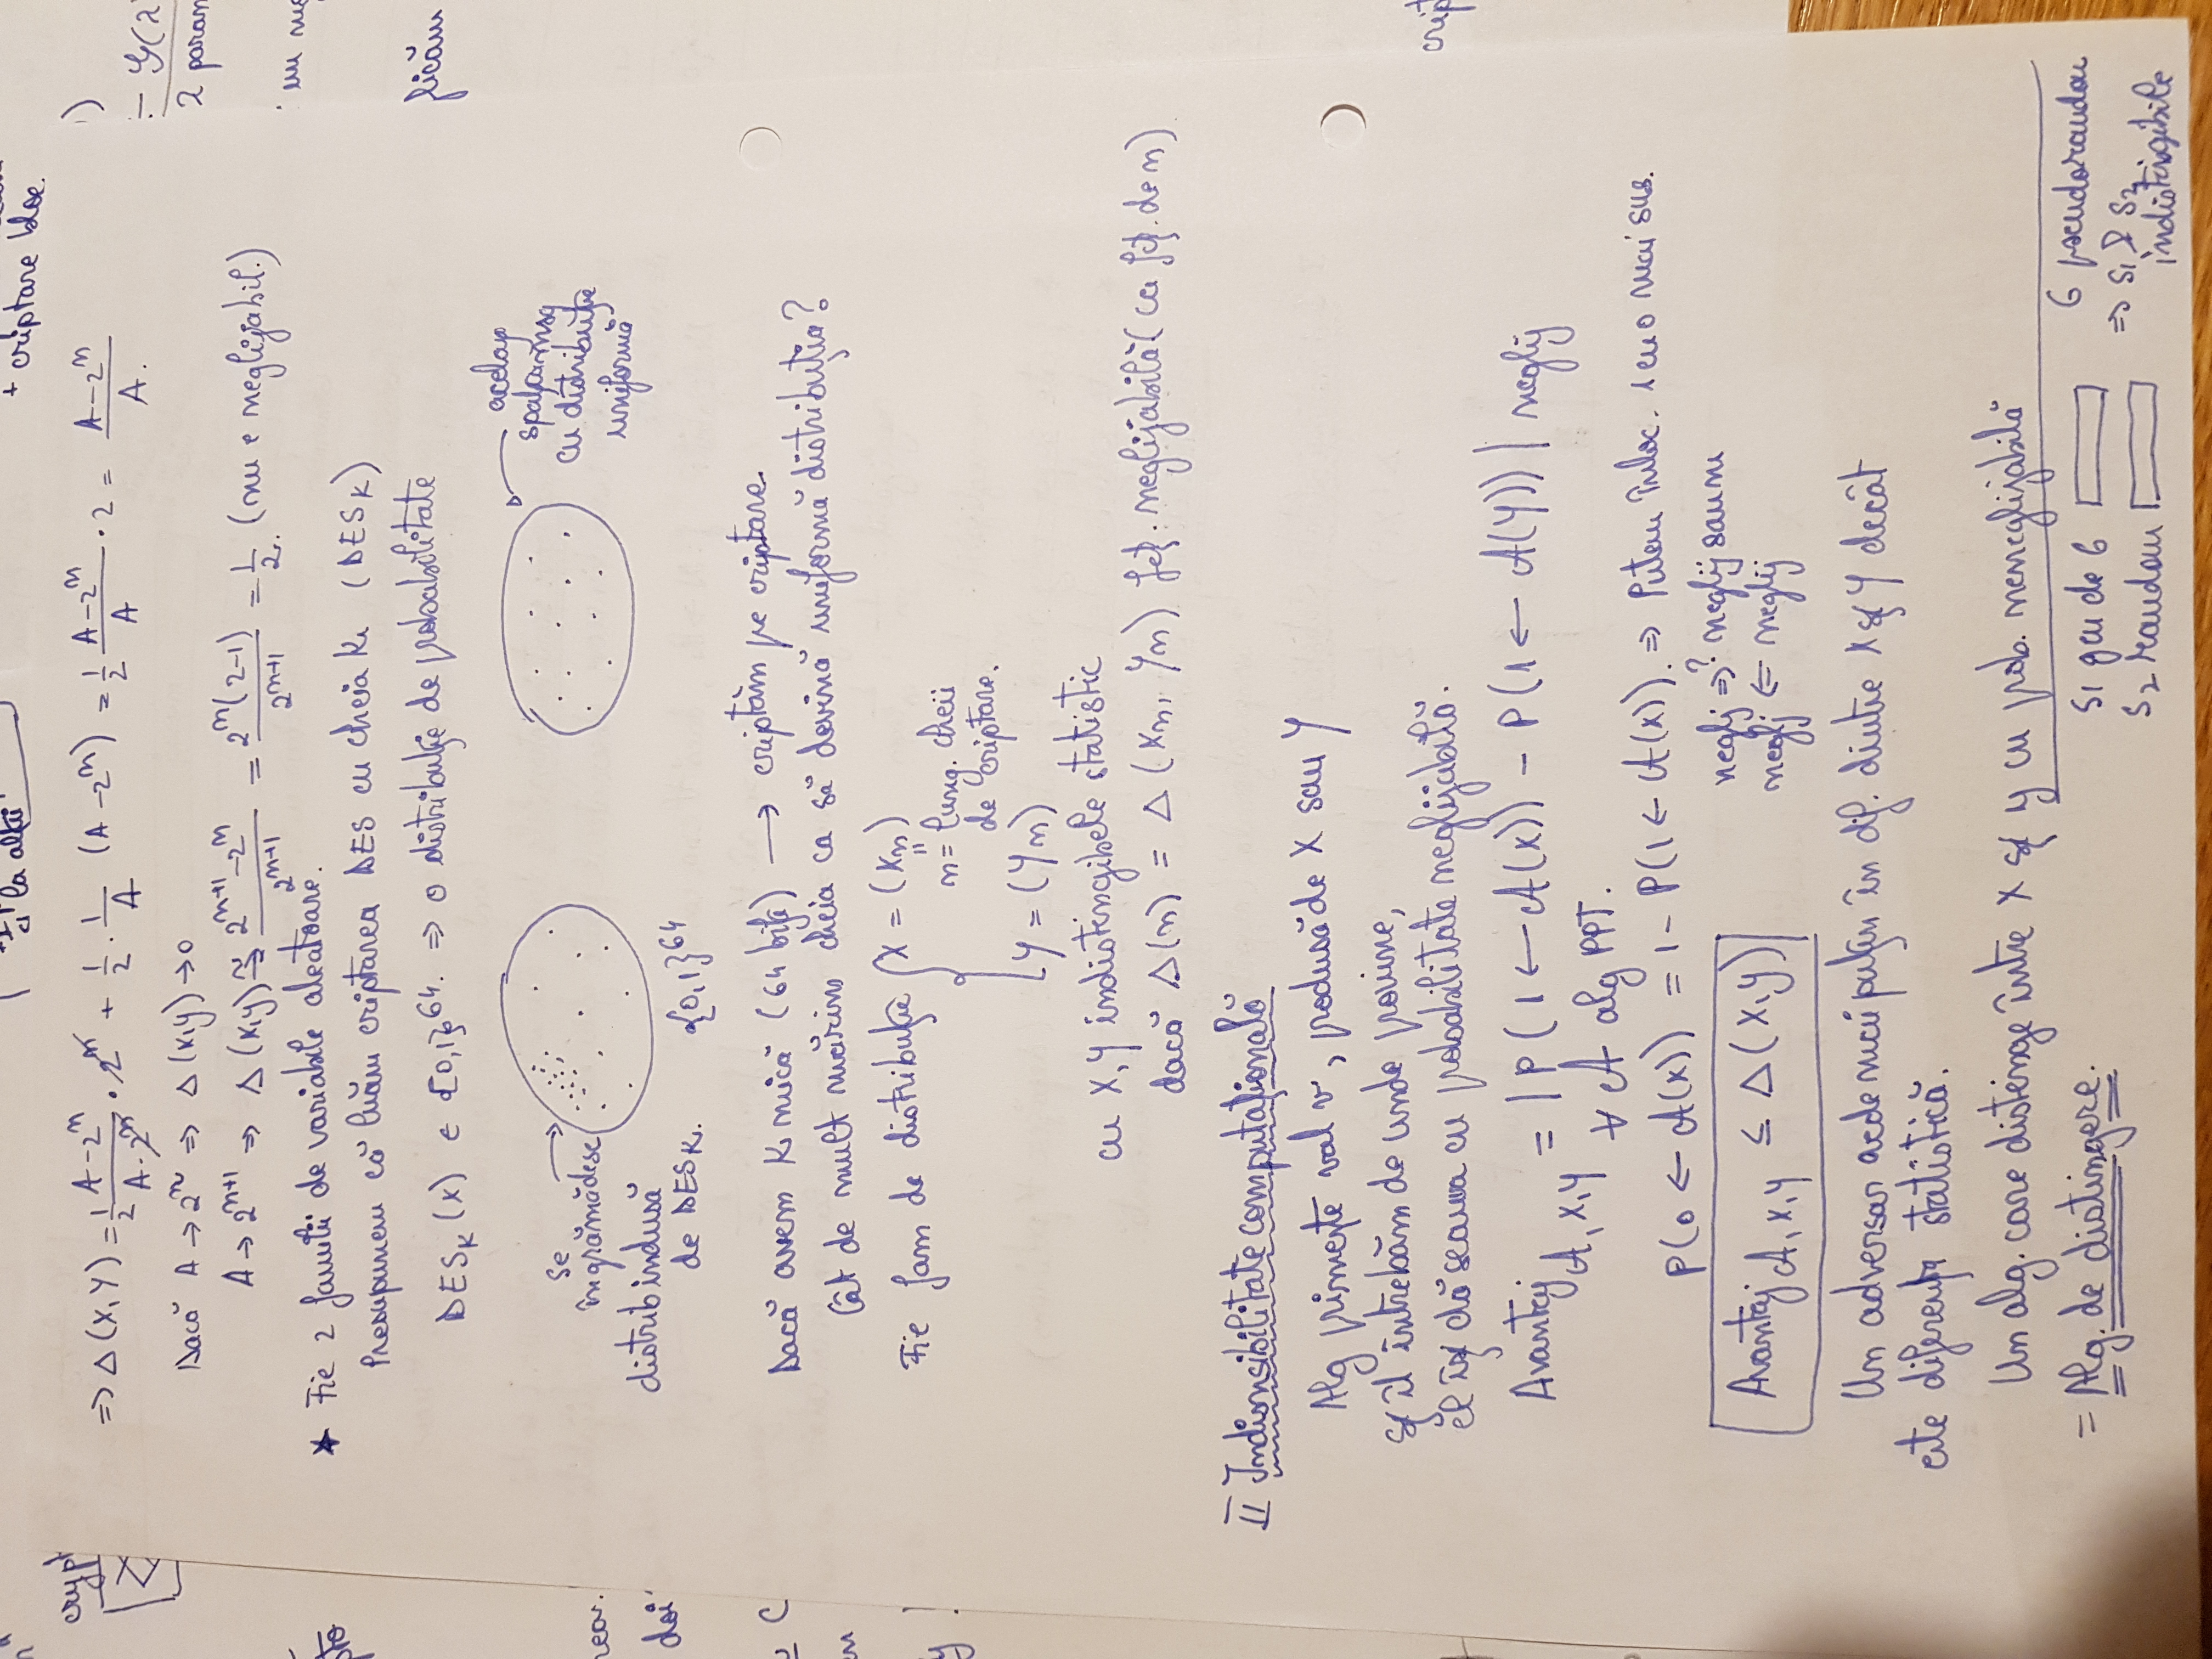 la alții
+ criptare bloc.
crypt
=> Δ(X,Y) = 1/2 (A-2^n)/(A·2^n) · 2^n + 1/2 · 1/A (A-2^n) = 1/2 (A-2^n)/A · 2 = (A-2^n)/A.
Dacă A → 2^n => Δ(X,Y) → 0
A → 2^{n+1} => Δ(X,Y) ≈ (2^{n+1}-2^n)/2^{n+1} = 2^n(2-1)/2^{n+1} = 1/2. (nu e neglijabil.)
* Fie 2 familii de variabile aleatoare.
Presupunem că luăm criptarea DES cu cheia K (DES_K)
DES_K(X) ∈ {0,1}^64. => o distribuție de probabilitate
se
îngrămădesc
distrib indusă
de DES_K.
{0,1}^64
același
spațiu msg
cu distribuție
uniformă
Dacă avem K mică (64 biți) → criptăm pe criptare.
Cât de mult mărim cheia ca să devină uniformă distribuția?
Fie fam de distribuție { X = (Xn)
n = lung. cheii
de criptare.
Y = (Yn)
cu X,Y indistingibele statistic
dacă Δ(n) = Δ(Xn, Yn) fcț. neglijabilă (ca fcț. de n)
II Indisnsibilitate computațională
Alg primește val v, produsă de X sau Y
și îl întrebăm de unde provine,
el își dă seama cu probabilitate neglijabilă.
Avantaj_{A,X,Y} = |P(1 ← A(X)) - P(1 ← A(Y))| neglij
∀ A alg PPT.
P(0 ← A(X)) = 1 - P(1 ← A(X)). => Putem înloc. 1 cu 0 mai sus.
Avantaj_{A,X,Y} ≤ Δ(X,Y)
neglj =>? neglij sau nu
neglj <= neglij
Un adversar vede mai puțin în dif. dintre X și Y decât
este diferența statistică.
Un alg. care distinge între X și Y cu prob. neneglijabilă
= Alg. de distingere.
S1 gen de G
S2 random
G pseudorandom
=> S1 & S2
indistingibile